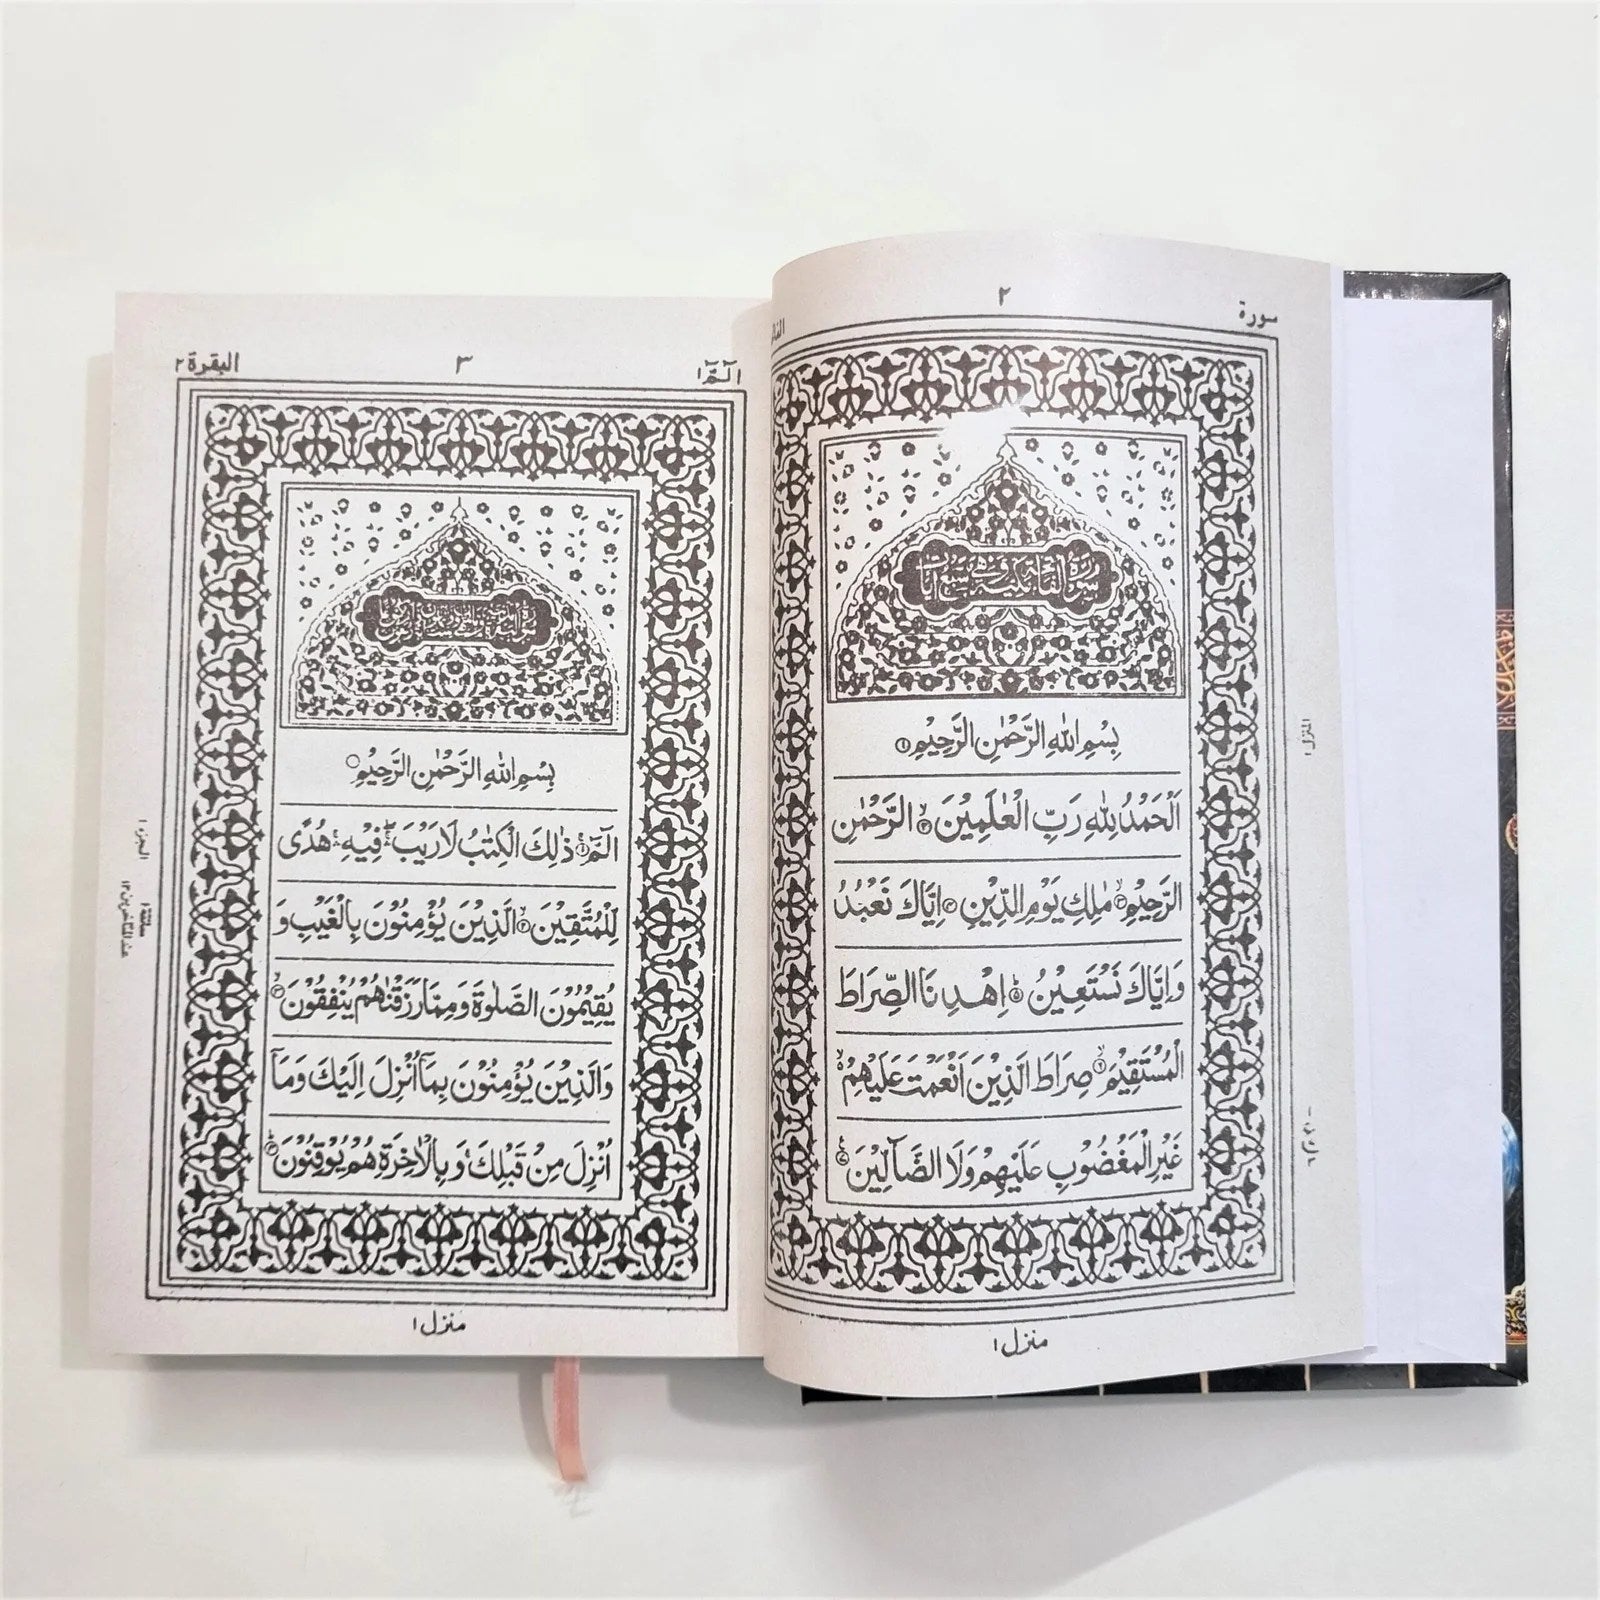 سورة
٢
بِسْمِ اللهِ الرَّحْمٰنِ الرَّحِيْمِ ۝١
اَلْحَمْدُ لِلّٰهِ رَبِّ الْعٰلَمِيْنَ ۝٢ الرَّحْمٰنِ
الرَّحِيْمِ ۝٣ مٰلِكِ يَوْمِ الدِّيْنِ ۝٤ اِيَّاكَ نَعْبُدُ
وَاِيَّاكَ نَسْتَعِيْنُ ۝٥ اِهْدِنَا الصِّرَاطَ
الْمُسْتَقِيْمَ ۝٦ صِرَاطَ الَّذِيْنَ اَنْعَمْتَ عَلَيْهِمْ
غَيْرِ الْمَغْضُوْبِ عَلَيْهِمْ وَلَا الضَّآلِّيْنَ ۝٧
المنزل ١
منزل ١
الٓمّٓ ١
٣
البقرة ٢
بِسْمِ اللهِ الرَّحْمٰنِ الرَّحِيْمِ
الٓمّٓ ۝١ ذٰلِكَ الْكِتٰبُ لَا رَيْبَ فِيْهِ هُدًى
لِّلْمُتَّقِيْنَ ۝٢ الَّذِيْنَ يُؤْمِنُوْنَ بِالْغَيْبِ وَ
يُقِيْمُوْنَ الصَّلٰوةَ وَمِمَّا رَزَقْنٰهُمْ يُنْفِقُوْنَ ۝٣
وَالَّذِيْنَ يُؤْمِنُوْنَ بِمَآ اُنْزِلَ اِلَيْكَ وَمَآ
اُنْزِلَ مِنْ قَبْلِكَ وَبِالْاٰخِرَةِ هُمْ يُوْقِنُوْنَ ۝٤
الجزء ١
منزل ١